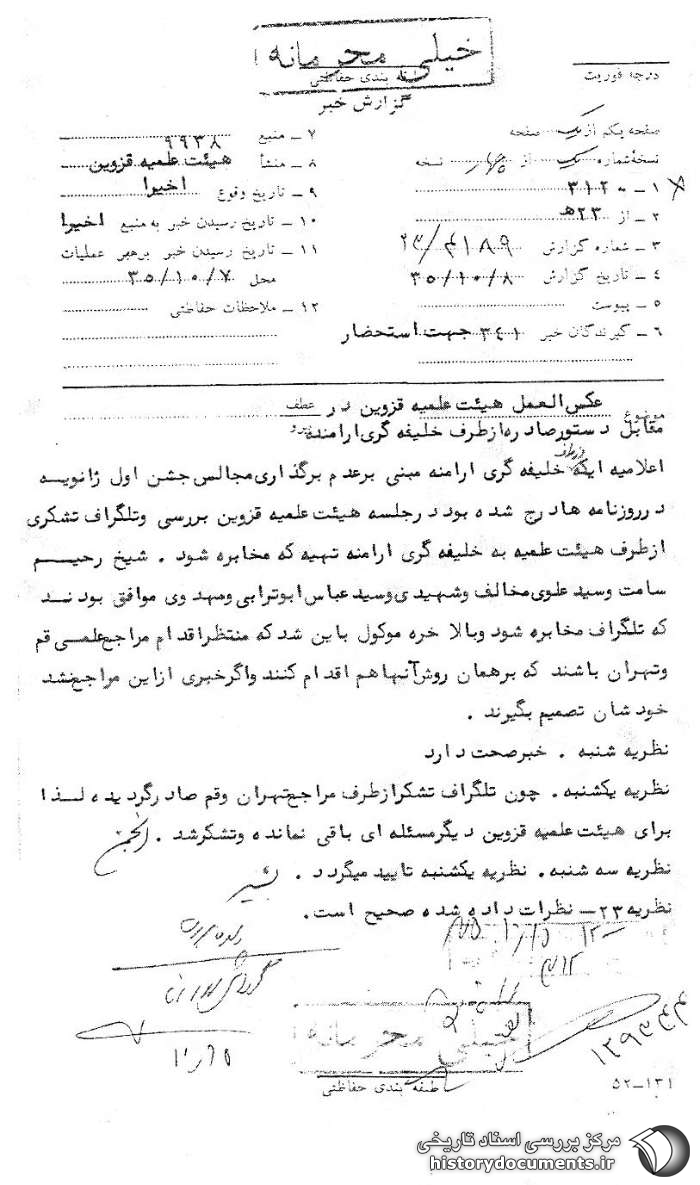 خیلی محرمانه
طبقه بندی حفاظتی
درجه فوریت
گزارش خبر
صفحه یکم از یک صفحه
نسخه شماره یک از چهار نسخه
۱ــ ۳۱۲۰
۲ــ از ۲۳ﻫ
۳ــ شماره گزارش
۴ــ تاریخ گزارش ۳۵/۱۰/۸
۵ــ پیوست
۶ــ گیرندگان خبر ۳۴۱ جهت استحضار
۷ــ منبع ۹۹۳۸
۸ــ منشأ هیئت علمیه قزوین
۹ــ تاریخ وقوع اخیرا
۱۰ــ تاریخ رسیدن خبر به منبع اخیرا
۱۱ــ تاریخ رسیدن خبر برهبر عملیات
محل ۳۵/۱۰/۷
۱۲ــ ملاحظات حفاظتی
موضوع عکس العمل هیئت علمیه قزوین در عطف
مقابل دستور صادره از طرف خلیفه گری ارامنه پیرو
اعلامیه ایکه از طرف خلیفه گری ارامنه مبنی برعدم برگذاری مجالس جشن اول ژانویسه
در روزنامه ها درج شده بود در جلسه هیئت علمیه قزوین بررسی وتلگراف تشکری
از طرف هیئت علمیه به خلیفه گری ارامنه تهیه که مخابره شود . شیخ رحیم
سامت وسید علوی مخالف وشهیدی وسید عباس ابوترابی ومهدوی موافق بودند
که تلگراف مخابره شود وبالا خره موکول باین شد که منتظر اقدام مراجع علمی قم
وتهران باشند که برهمان روش آنها هم اقدام کنند واگر خبری ازاین مراجع نشد
خودشان تصمیم بگیرند .
نظریه شنبه . خبر صحت دارد
نظریه یکشنبه . چون تلگراف تشکر از طرف مراجع تهران وقم صادر گردیده لذا
برای هیئت علمیه قزوین دیگر مسئله ای باقی نمانده وتشکر شد . انجمن
نظریه سه شنبه . نظریه یکشنبه تایید میگردد . بشیر
نظریه ۲۳ــ نظرات داده شده صحیح است .
خیلی محرمانه
طبقه بندی حفاظتی
۵۲ــ۱۳۱
مرکز بررسی اسناد تاریخی
historydocuments.ir